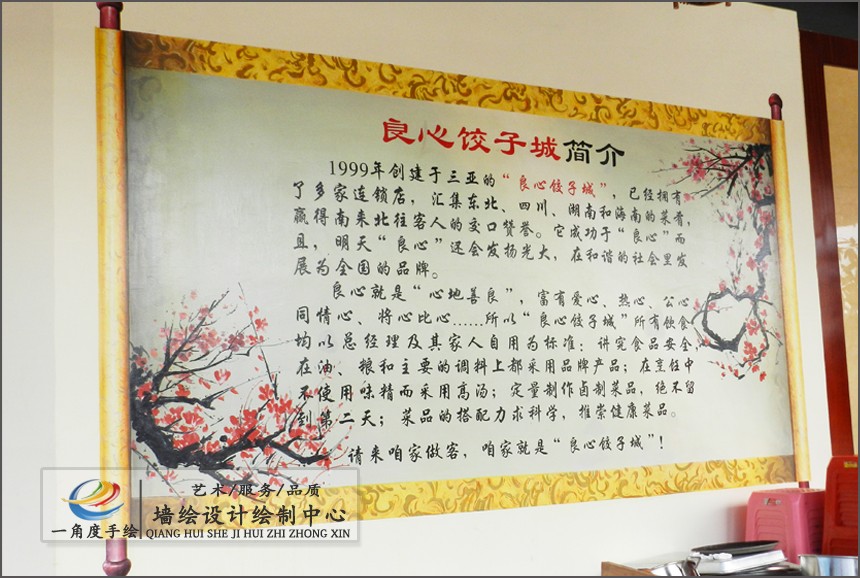 良心饺子城简介
1999年创建于三亚的“良心饺子城”，已经拥有
了多家连锁店，汇集东北、四川、湖南和海南的菜肴，
赢得南来北往客人的交口赞誉。它成功于“良心”而
且，明天“良心”还会发扬光大，在和谐的社会里发
展为全国的品牌。
良心就是“心地善良”，富有爱心、热心、公心
同情心、将心比心......所以“良心饺子城”所有饮食
均以总经理及其家人自用为标准：讲究食品安全
在油、粮和主要的调料上都采用品牌产品；在烹饪中
不使用味精而采用高汤；定量制作卤制菜品，绝不留
到第二天；菜品的搭配力求科学，推崇健康菜品。
请来咱家做客，咱家就是“良心饺子城”！
一角度手绘
艺术/服务/品质
墙绘设计绘制中心
QIANG HUI SHE JI HUI ZHI ZHONG XIN